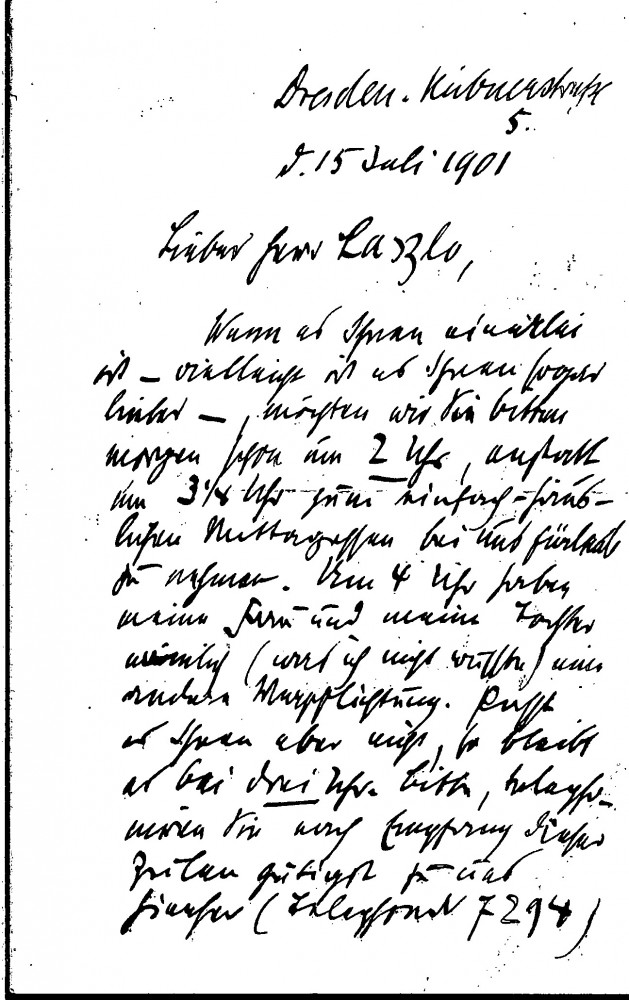 Dresden. Hübnerstraße
5.
d. 15 Juli 1901
Lieber Herr Laszlo,
Wenn es Ihnen einerlei
ist – vielleicht ist es Ihnen sogar
lieber –, möchten wir Sie bitten
morgen schon um 2 Uhr, anstatt
um 3 1/4 Uhr zum einfach-häus-
lichen Mittagessen bei uns fürlieb
zu nehmen. Um 4 Uhr haben
meine Frau und meine Tochter
nämlich (was ich nicht wußte) eine
andere Verpflichtung. Paßt
es Ihnen aber nicht, so bleibt
es bei drei Uhr. Bitte, telepho-
niren Sie nach Empfang dieser
Zeilen gütigst zu uns
hierher (Telephon 7294)